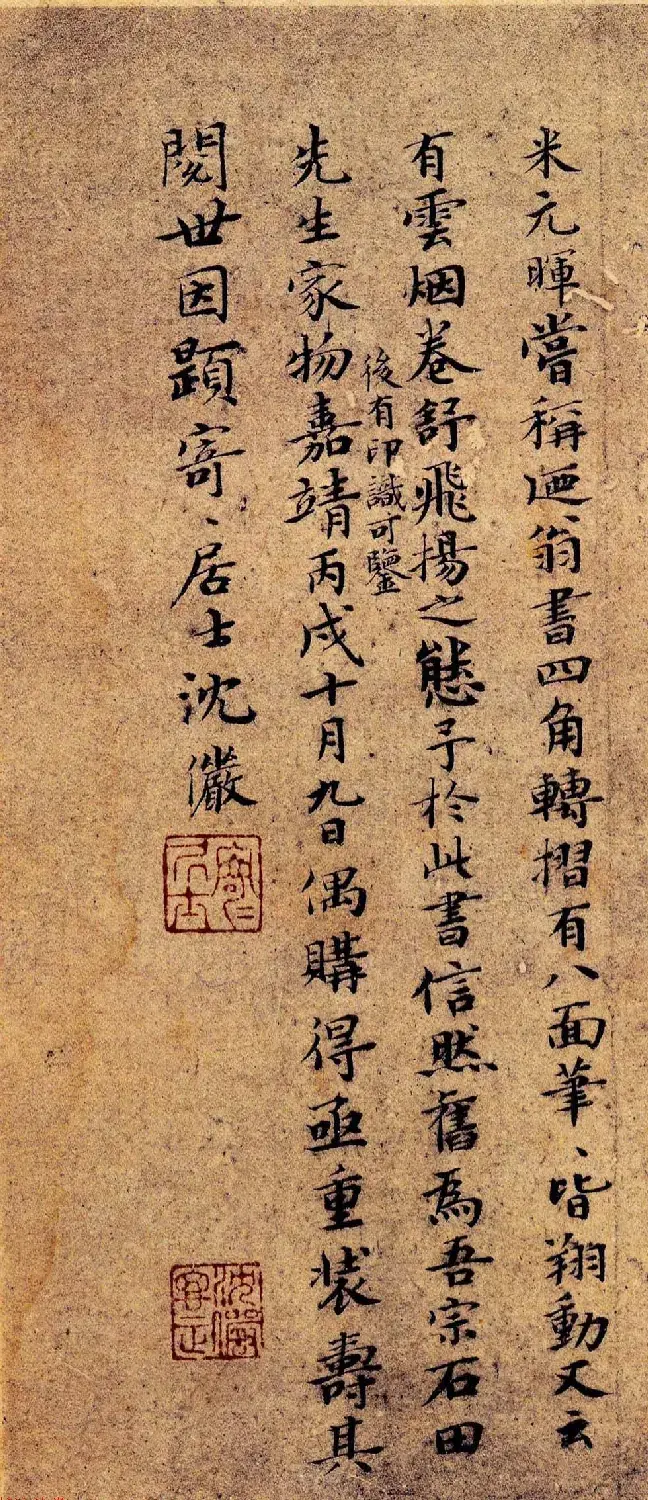 米元暉嘗稱迺翁書四角轉摺有八面筆、皆翔動又云
有雲烟卷舒飛揚之態予於此書信然舊爲吾宗石田
後有印識可鑒
先生家物嘉靖丙戌十月九日偶購得亟重装壽其
閱世因題寄、居士沈儼
寄〻居士